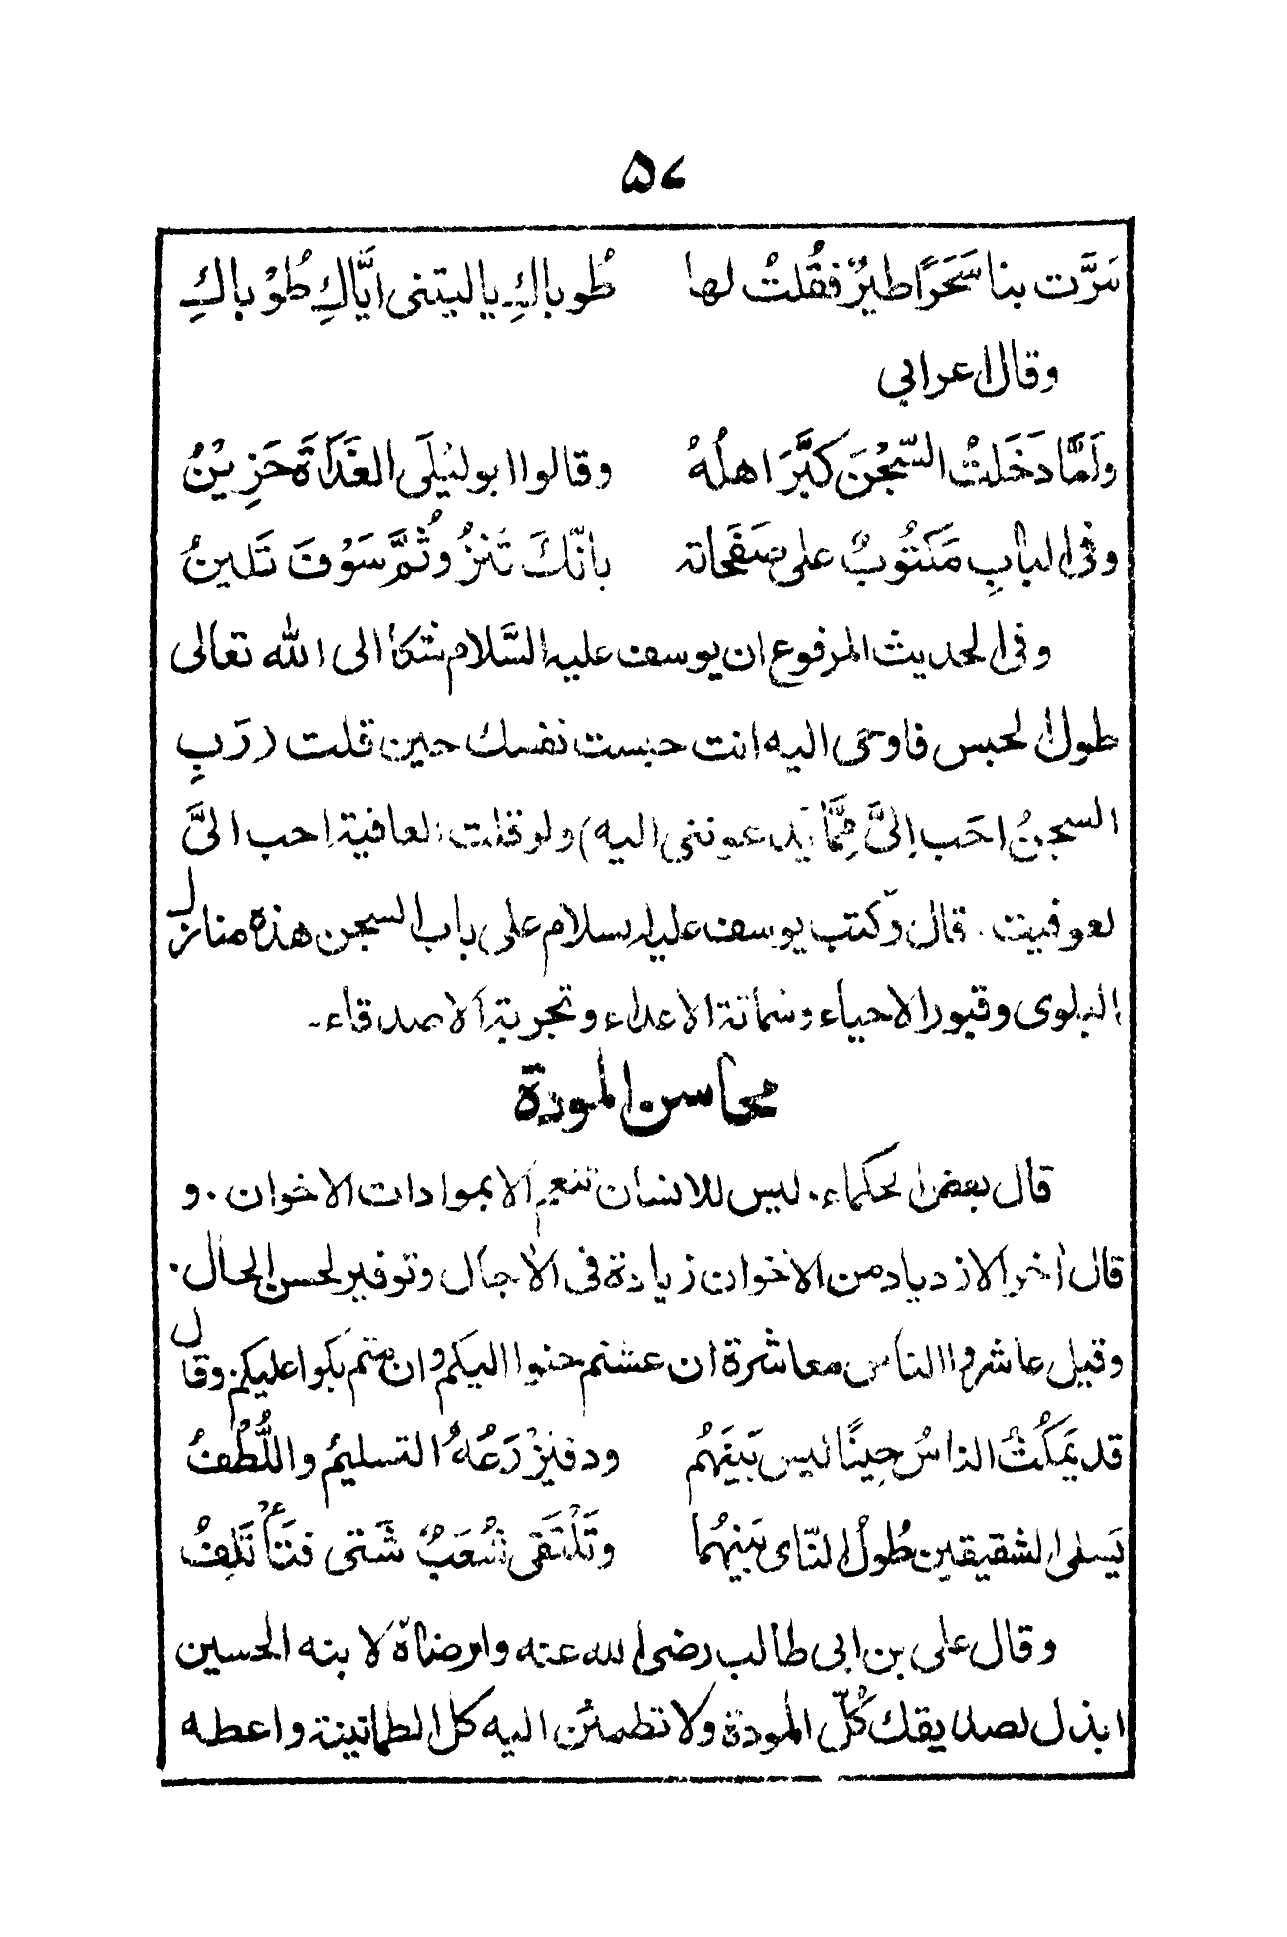 ۵۷
مَرَّت بنا سَحَرًا طيرٌ فقُلتُ لها طُوباكِ ياليتنى ايَّاكِ طُوْباكِ
وقال اعرابي
ولَمَّا دَخَلتُ السّجْنَ كَبَّرَ اهلُهُ وقالوا ابوليْلَى الغَدَاةَ حَزِيْنُ
وفى البابِ مَكتُوبٌ على صَفَحَاته بانّكَ تَنزُو ثُمَّ سَوْفَ تَلينُ
وفى الحديث المرفوع ان يوسف عليه السَّلام شكا الى الله تعالى
طول الحبس فاوحى اليه انت حبست نفسك حين قلت (رَبِ
السجنُ احَب إلىَّ مِمَّا يدعوننى اليه) ولو قلت العافية احب الىَّ
لعوفيت. قال وكتب يوسف عليه السلام على باب السجن هذه منازل
البلوى وقبور الاحياء وشماتة الاعداء وتجربة الاصدقاء۔
محاسن المودة
قال بعض الحكماء. ليس للانسان تنعيم الا بموادات الاخوان. و
قال أخر الازدياد من الاخوان زيادة فى الأجال وتوفير لحسن الحال.
وقيل عاشروا الناس معاشرة ان عشتم حنوا اليكم وان متم بكوا عليكم وقال
قد يَمكُثُ الناسُ حِينًا ليس بَينَهُم ود فيَزْرَعُهُ التسليمُ واللُّطْفُ
يَسلى الشقيقين طُولُ النّاى بَينهُما وتَلْتَقى شُعَبٌ شَتى فتَأْتَلِفُ
وقال على بن ابى طالب رضى الله عنه وارضاه لابنه الحسين
ابذل لصديقك كُلّ المودة ولا تطمئن اليه كل الطمانينة واعطه